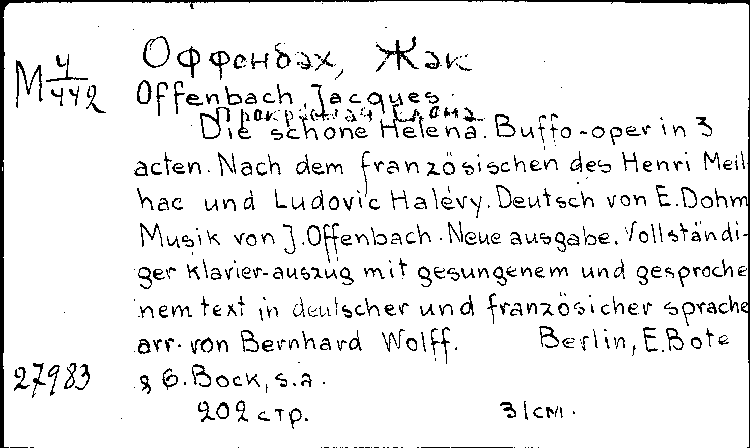 Оффенбах, Жак
М 4/442
Offenbach, Jacques.
Прекрасная Елена
Die schöne Helena. Buffo-oper in 3
acten. Nach dem französischen des Henri Meil-
hac und Ludovic Halévy. Deutsch von E. Dohm
Musik von J. Offenbach. Neue ausgabe. Vollständi-
ger klavier-auszug mit gesungenem und gesproche
nem text in deutscher und französicher sprache
arr. von Bernhard Wolff. Berlin, E. Bote
27983 & G. Bock, s.a.
202 стр. 31 см.